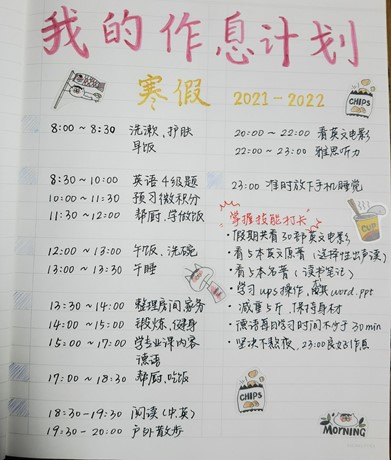 我的作息计划
寒假 2021-2022
8:00~8:30 洗漱、护肤
早饭
8:30~10:00 英语4级题
10:00~11:30 预习微积分
11:30~12:00 帮厨、学做饭
12:00~13:00 午饭、洗碗
13:00~13:30 午睡
13:30~14:00 整理房间、家务
14:00~15:00 锻炼、健身
15:00~17:00 学专业课内容
德语
17:00~18:30 帮厨、吃饭
18:30-19:30 阅读(中英)
19:30-20:00 户外散步
20:00~22:00 看英文电影
22:00~23:00 雅思听力
23:00 准时放下手机睡觉
掌握技能打卡
·假期共看30部英文电影
·看5本英文原著(选择性出声读)
·看5本名著(读书笔记)
·学习ups操作,word.ppt
·减重5斤,保持身材
·德语每日学习时间不少于30min
·坚决不熬夜,23:00良好作息
CHIPS
CUP
CHIPS
MORNING